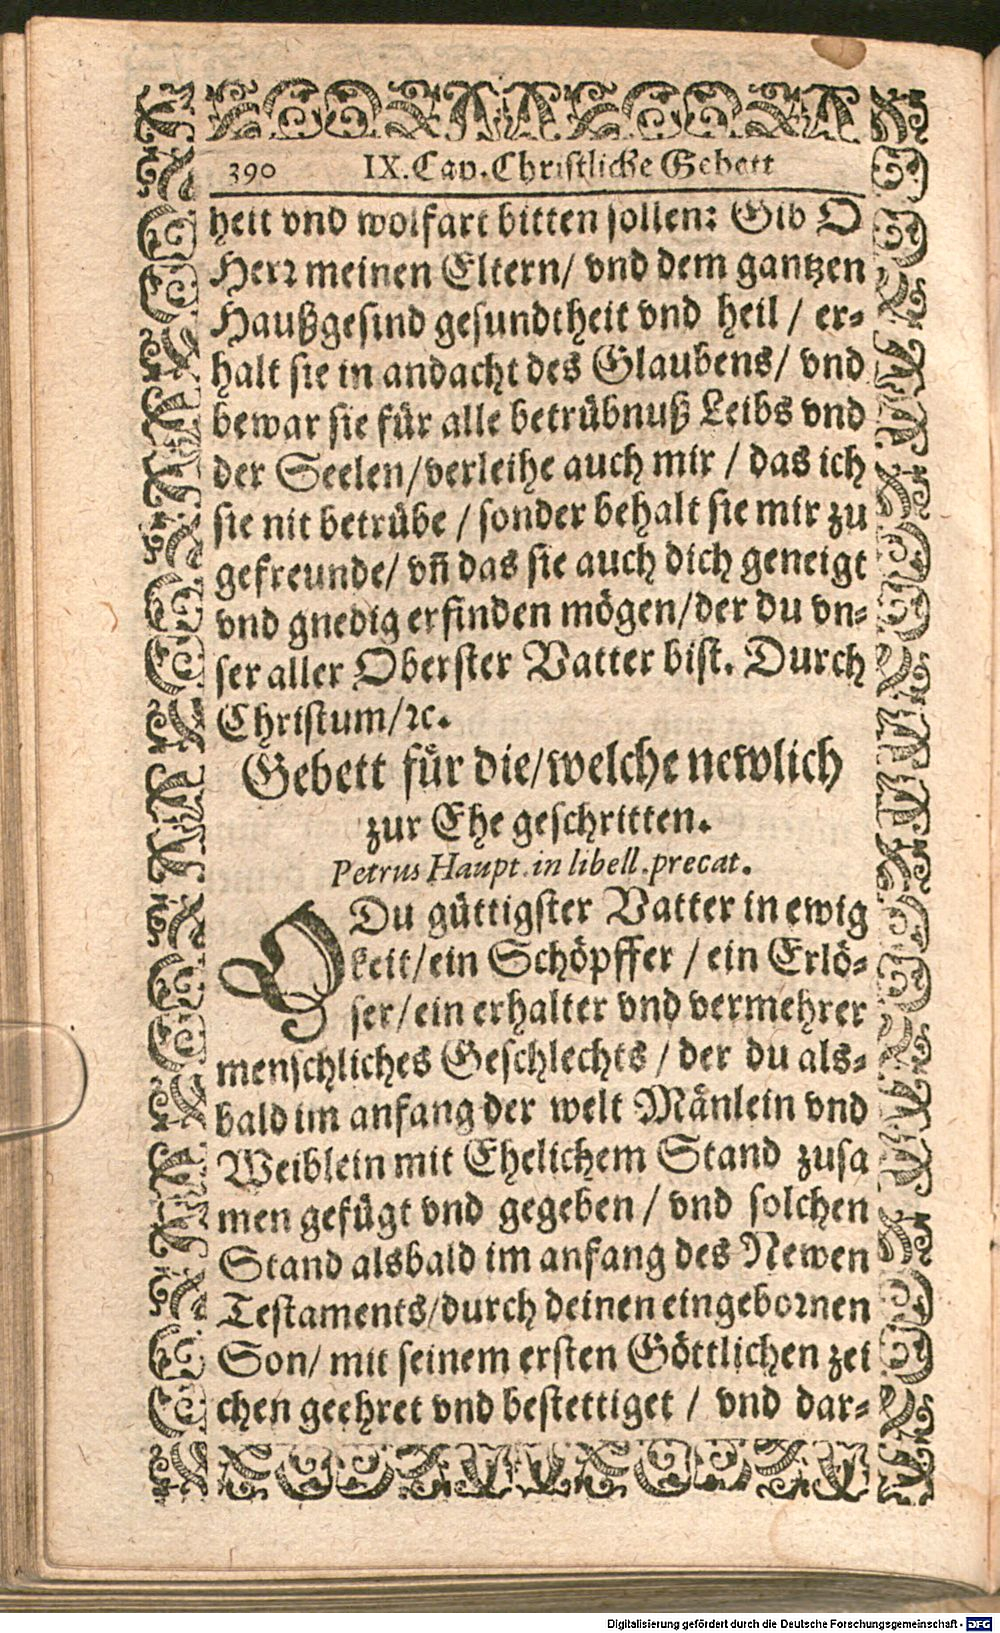 390 IX. Cap. Christliche Gebett
heit vnd wolfart bitten sollen: Gib O
Herꝛ meinen Eltern/ vnd dem gantzen
Haußgesind gesundtheit vnd heil / er⸗
halt sie in andacht des Glaubens/ vnd
bewar sie für alle betrübnuß Leibs vnd
der Seelen/verleihe auch mir / das ich
sie nit betrübe / sonder behalt sie mir zu
gefreunde/ vn̄ das sie auch dich geneigt
vnd gnedig erfinden mögen/der du vn⸗
ser aller Oberster Vatter bist. Durch
Christum/ꝛc.
Gebett für die/welche newlich
zur Ehe geschritten.
Petrus Haupt. in libell. precat.
O Du güttigster Vatter in ewig
keit/ein Schöpffer / ein Erlö⸗
ser/ein erhalter vnd vermehrer
menschliches Geschlechts / der du als⸗
bald im anfang der welt Mänlein vnd
Weiblein mit Ehelichem Stand zusa
men gefügt vnd gegeben / vnd solchen
Stand alsbald im anfang des Newen
Testaments/durch deinen eingeboꝛnen
Son/ mit seinem ersten Göttlichen zei
chen geehret vnd bestettiget / vnd dar⸗
Digitalisierung gefördert durch die Deutsche Forschungsgemeinschaft - DFG